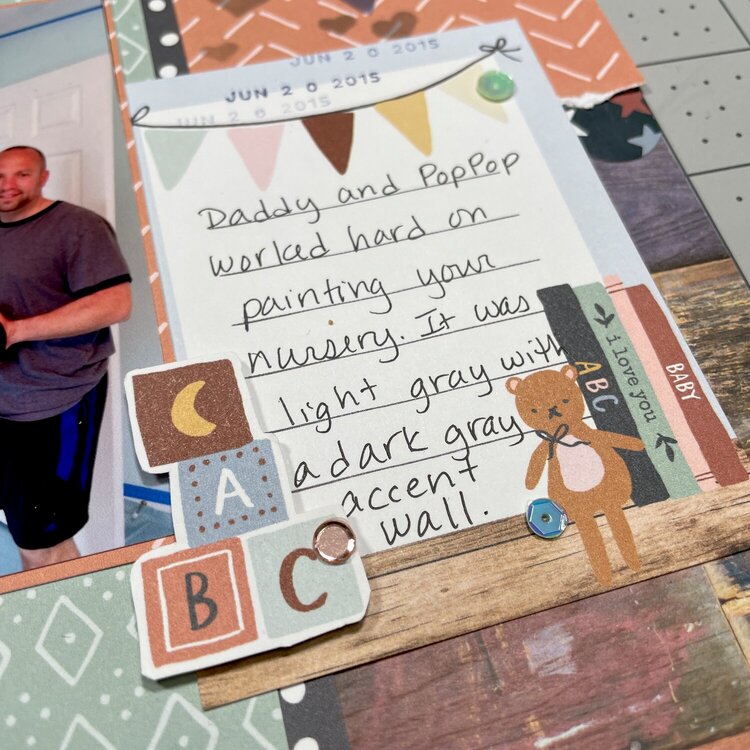 JUN 20 2015
JUN 20 2015
JUN 20 2015
Daddy and PopPop
worked hard on
painting your
nursery. It was
light gray with
a dark gray
accent
wall.
ABC
i love you
BABY
A
B C